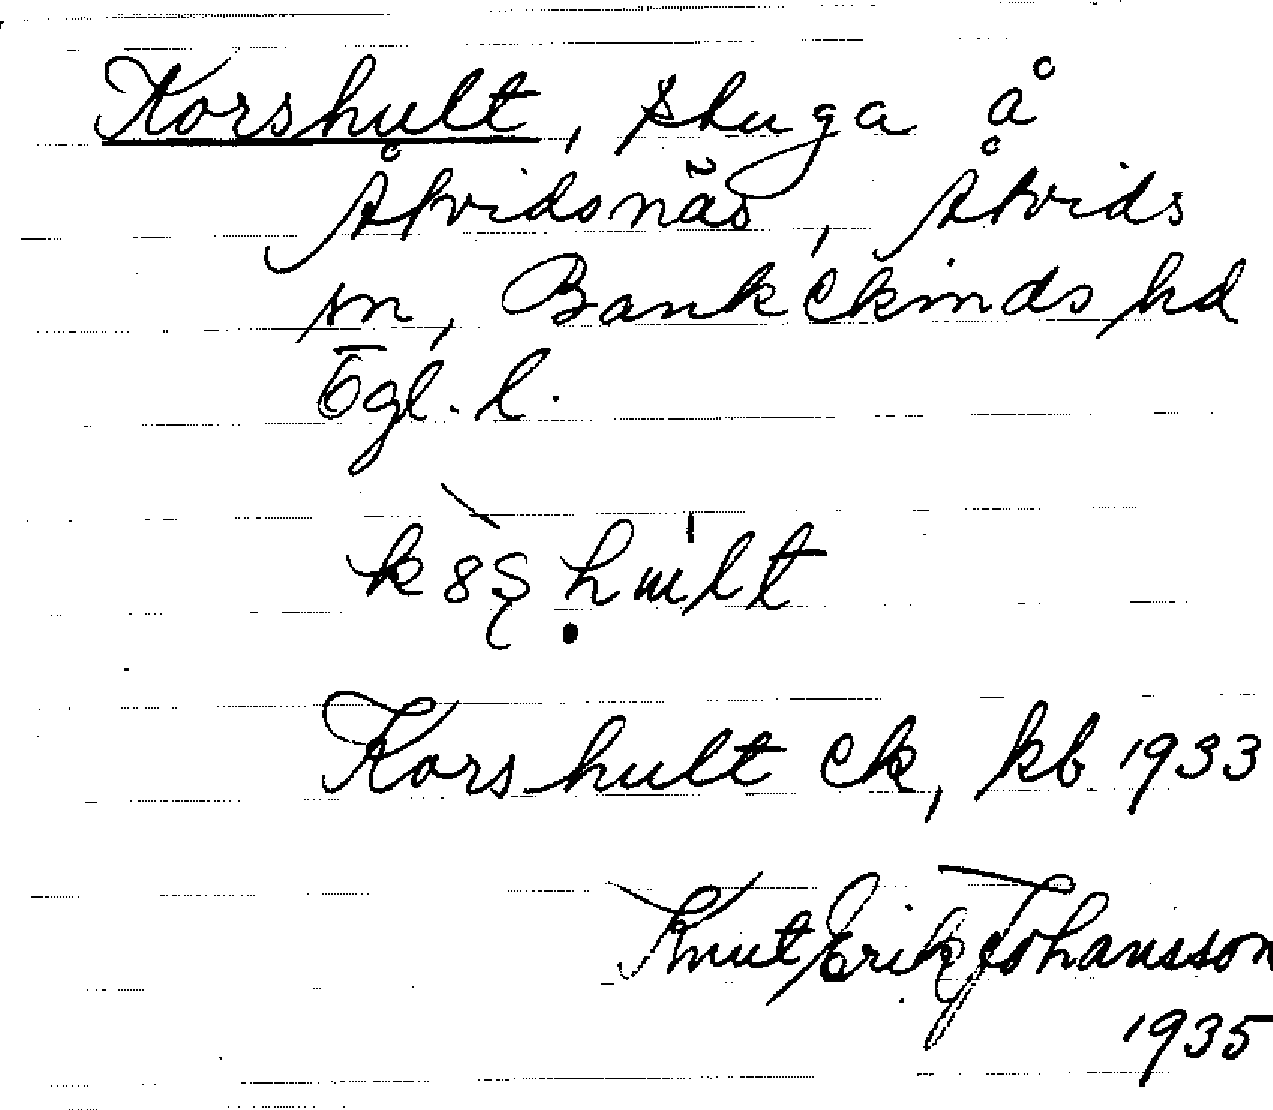 Korshult, stuga å
Åtvidsnäs, Åtvids
sn, Bankekinds hd
Ögl. l.
Korshult ck, kb 1933
Knut Erik Johansson
1935